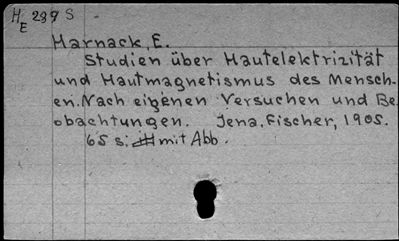 H 239 S
E
Harnack, E.
Studien über Hautelektrizität
und Hautmagnetismus des Mensch-
en. Nach eigenen Versuchen und Be
obachtungen. Jena, Fischer, 1905.
65 s. mit Abb.